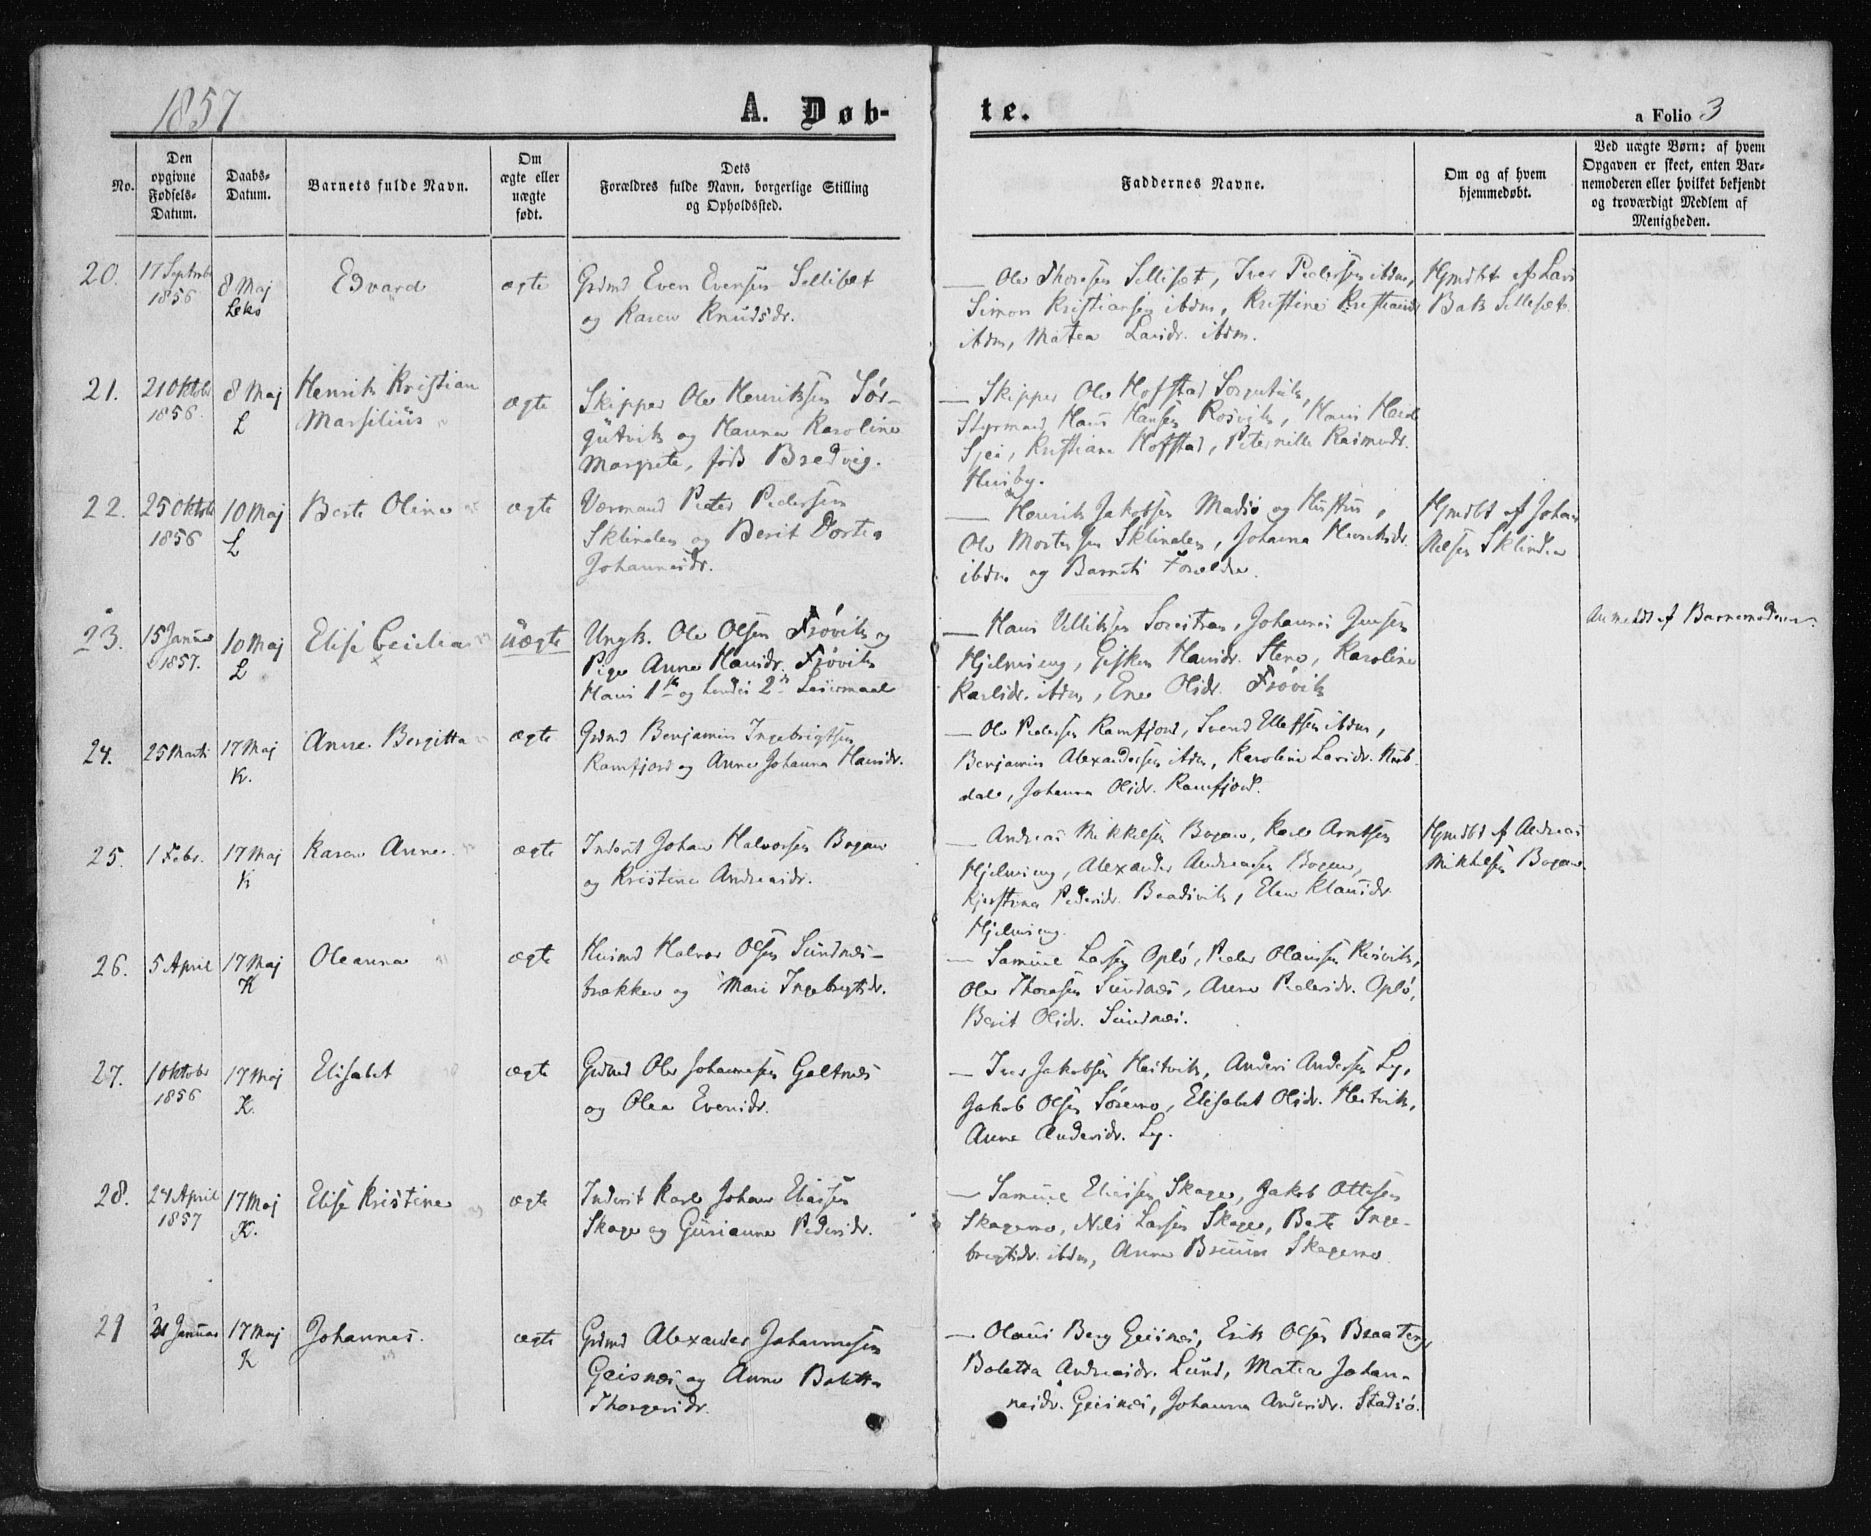 1857
A. Døb-
te.
a Folio 3
No.
Den opgivne Fødsels-Datum.
Daabs-Datum.
Barnets fulde Navn.
Om ægte eller uægte født.
Dets Forældres fulde Navn, borgerlige Stilling og Opholdssted.
Faddernes Navne.
Om og af hvem hjemmedøbt.
Ved uægte Børn: af hvem Opgaven er skeet, enten Barnemoderen eller hvilket bekjendt og troværdigt Medlem af Menigheden.
20.
17 Septembr
1856
8 Maj
Leka
Edvard
ægte
Grdmd Even Evensen Sellisæt
og Karen Knudsdr.
— Ole Thoresen Sellisæt, Iver Pedersen ibdm,
Simon Kristiansen ibdm, Kristine Kristiansdr
ibdm, Matea Larsdr. ibdm.
Hjmdbt af Lars
Bak Sellisæt
21.
21 Oktobr
1856.
8 Maj
L
Henrik Kristian
Marsilius
ægte
Skipper Ole Henriksen Sør-
gutvik og Hanna Karoline
Margrete, født Bredvig.
— Skipper Ole Hofstad Sørgutvik,
Styrmand Hans Hansen Rosvik, Hans
Kristiane Hofstad, Peternille Rasmusdr.
Husby.
22.
25 Oktobr
1856
10 Maj
L
Berte Oline
ægte
Værmand Peter Pedersen
Sklinden og Berit Dortea
Johannesdr.
— Henrik Jakobsen Madsø og Hustru,
Ole Mortensen Sklinden, Johanna Henriksdr.
ibdm og Barnets Forældre.
Hjmdbt af Johan
Nilsen Sklinden
23.
15 Januar
1857.
10 Maj
L
Elise Cecilia
uægte
Ungk. Ole Olsen Frøvik og
Pige Anne Hansdr. Frøvik
Hans 1ste og hendes 2det Leiermaal
— Hans Villiksen Johannes Jensen
Hjelmseng, Gisken Hansdr. Steno, Karoline
Karlsdr. ibdm, Ene Olsdr. Frøvik
Anmeldt af Barnemoderen.
24.
25 Marts
17 Maj
K.
Anne Bergitta
ægte
Grdmd Benjamin Ingebrigtsen
Ramfjord og Anne Johanna Hansdr.
— Ole Pedersen Ramfjord, Svend Ellefsen ibdm,
Benjamin Alexandersen ibdm, Karoline Larsdr.
dal, Johanna Olsdr. Ramfjord.
25.
1 Febr.
17 Maj
K
Karen Anne
ægte
Inderst Johan Halvorsen Bogen
og Kristine Andreasdr.
— Andreas Mikkelsen Bogen, Karl Arntsen
Hjelmseng, Alexander Andreassen Bogen,
Kjerstina Pedersdr. Bradsvik, Elen Klausdr
Hjelmseng.
Hjmdbt af Andreas
Mikkelsen Bogen
26.
5 April
17 Maj
K
Oleanna
ægte
Husmd Halvor Olsen Sundnes-
brekken og Mari Ingebrigtsdr.
— Samuel Larsen Oplø, Peder Olaussen Risvik,
Ole Thoresen Sundnes, Anne Pedersdr. Oplø,
Berit Olsdr. Sundnes.
27.
1 Oktobr
1856
17 Maj
K.
Elisabet
ægte
Grdmd Ole Johannesen Galtnes
og Olea Evensdr.
— Iver Jakobsen Hestvik, Anders Andersen Ly,
Jakob Olsen Søremo, Elisabet Olsdr. Hestvik,
Anne Andersdr. Ly.
28.
24 April
1857
17 Maj
K.
Elise Kristine
ægte
Inderst Karl Johan Eliassen
Skage og Gurianna Pedersdr.
— Samuel Eliassen Skage, Jakob Ottesen
Skagemo, Nils Larsen Skage, Berte Inge-
brigtsdr. ibdm, Anne Bruun Skagemo
29
21 Januar
17 Maj
K
Johannes.
ægte
Grdmd Alexander Johannesen
Geisnes og Anne Boletta
Thorgersdr.
— Olaus Berg Geisnes, Erik Olsen Braaten,
Boletta Andreasdr. Lund, Matea Johan-
nesdr. Geisnes, Johanna Andersdr. Stadsø.